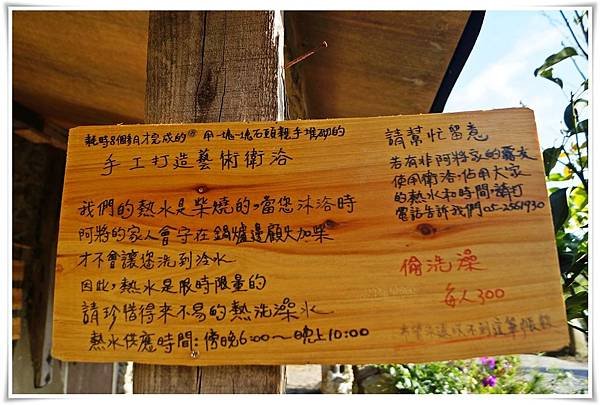 耗時8個月才完成的 用一塊一塊石頭親手堆砌的
手工打造藝術衛浴
我們的熱水是柴燒的,當您沐浴時
阿將的家人會守在鍋爐邊顧火加柴
才不會讓您洗到冷水
因此,熱水是限時限量的
請珍惜得來不易的熱洗澡水
熱水供應時間:傍晚6:00~晚上10:00
請幫忙留意
若有非阿將家的露友
使用衛浴,佔用大家
的熱水和時間,請打
電話告訴我們05-2561930
偷洗澡
每人300
希望永遠收不到這筆帳款